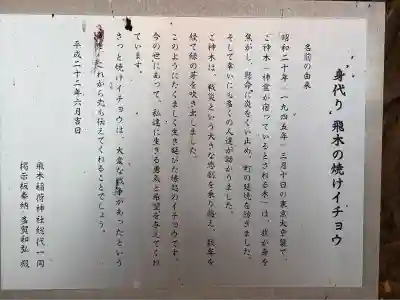 "身代り" 飛木の焼けイチョウ
名前の由来
昭和二十年(一九四五年)三月十日の東京大空襲で、
ご神木(神霊が宿っているとされる木)は、我が身を
焦がし、懸命に炎をくい止め、町の延焼を防ぎました。
そして幸いにも多くの人達が助かりました。
ご神木は、戦災という大きな悲劇を乗り越え、数年を
経て緑の芽を吹き出しました。
このようにたくましく生き延びた縁起のイチョウです。
今の世にあって、私達に生きる勇気と希望を与えてくれ
ています。
きっと焼けイチョウは、大変な戦争があったという
これから先も伝えてくれることでしょう。
平成二十二年六月吉日
飛木稲荷神社総代一同
掲示板奉納 多賀和弘